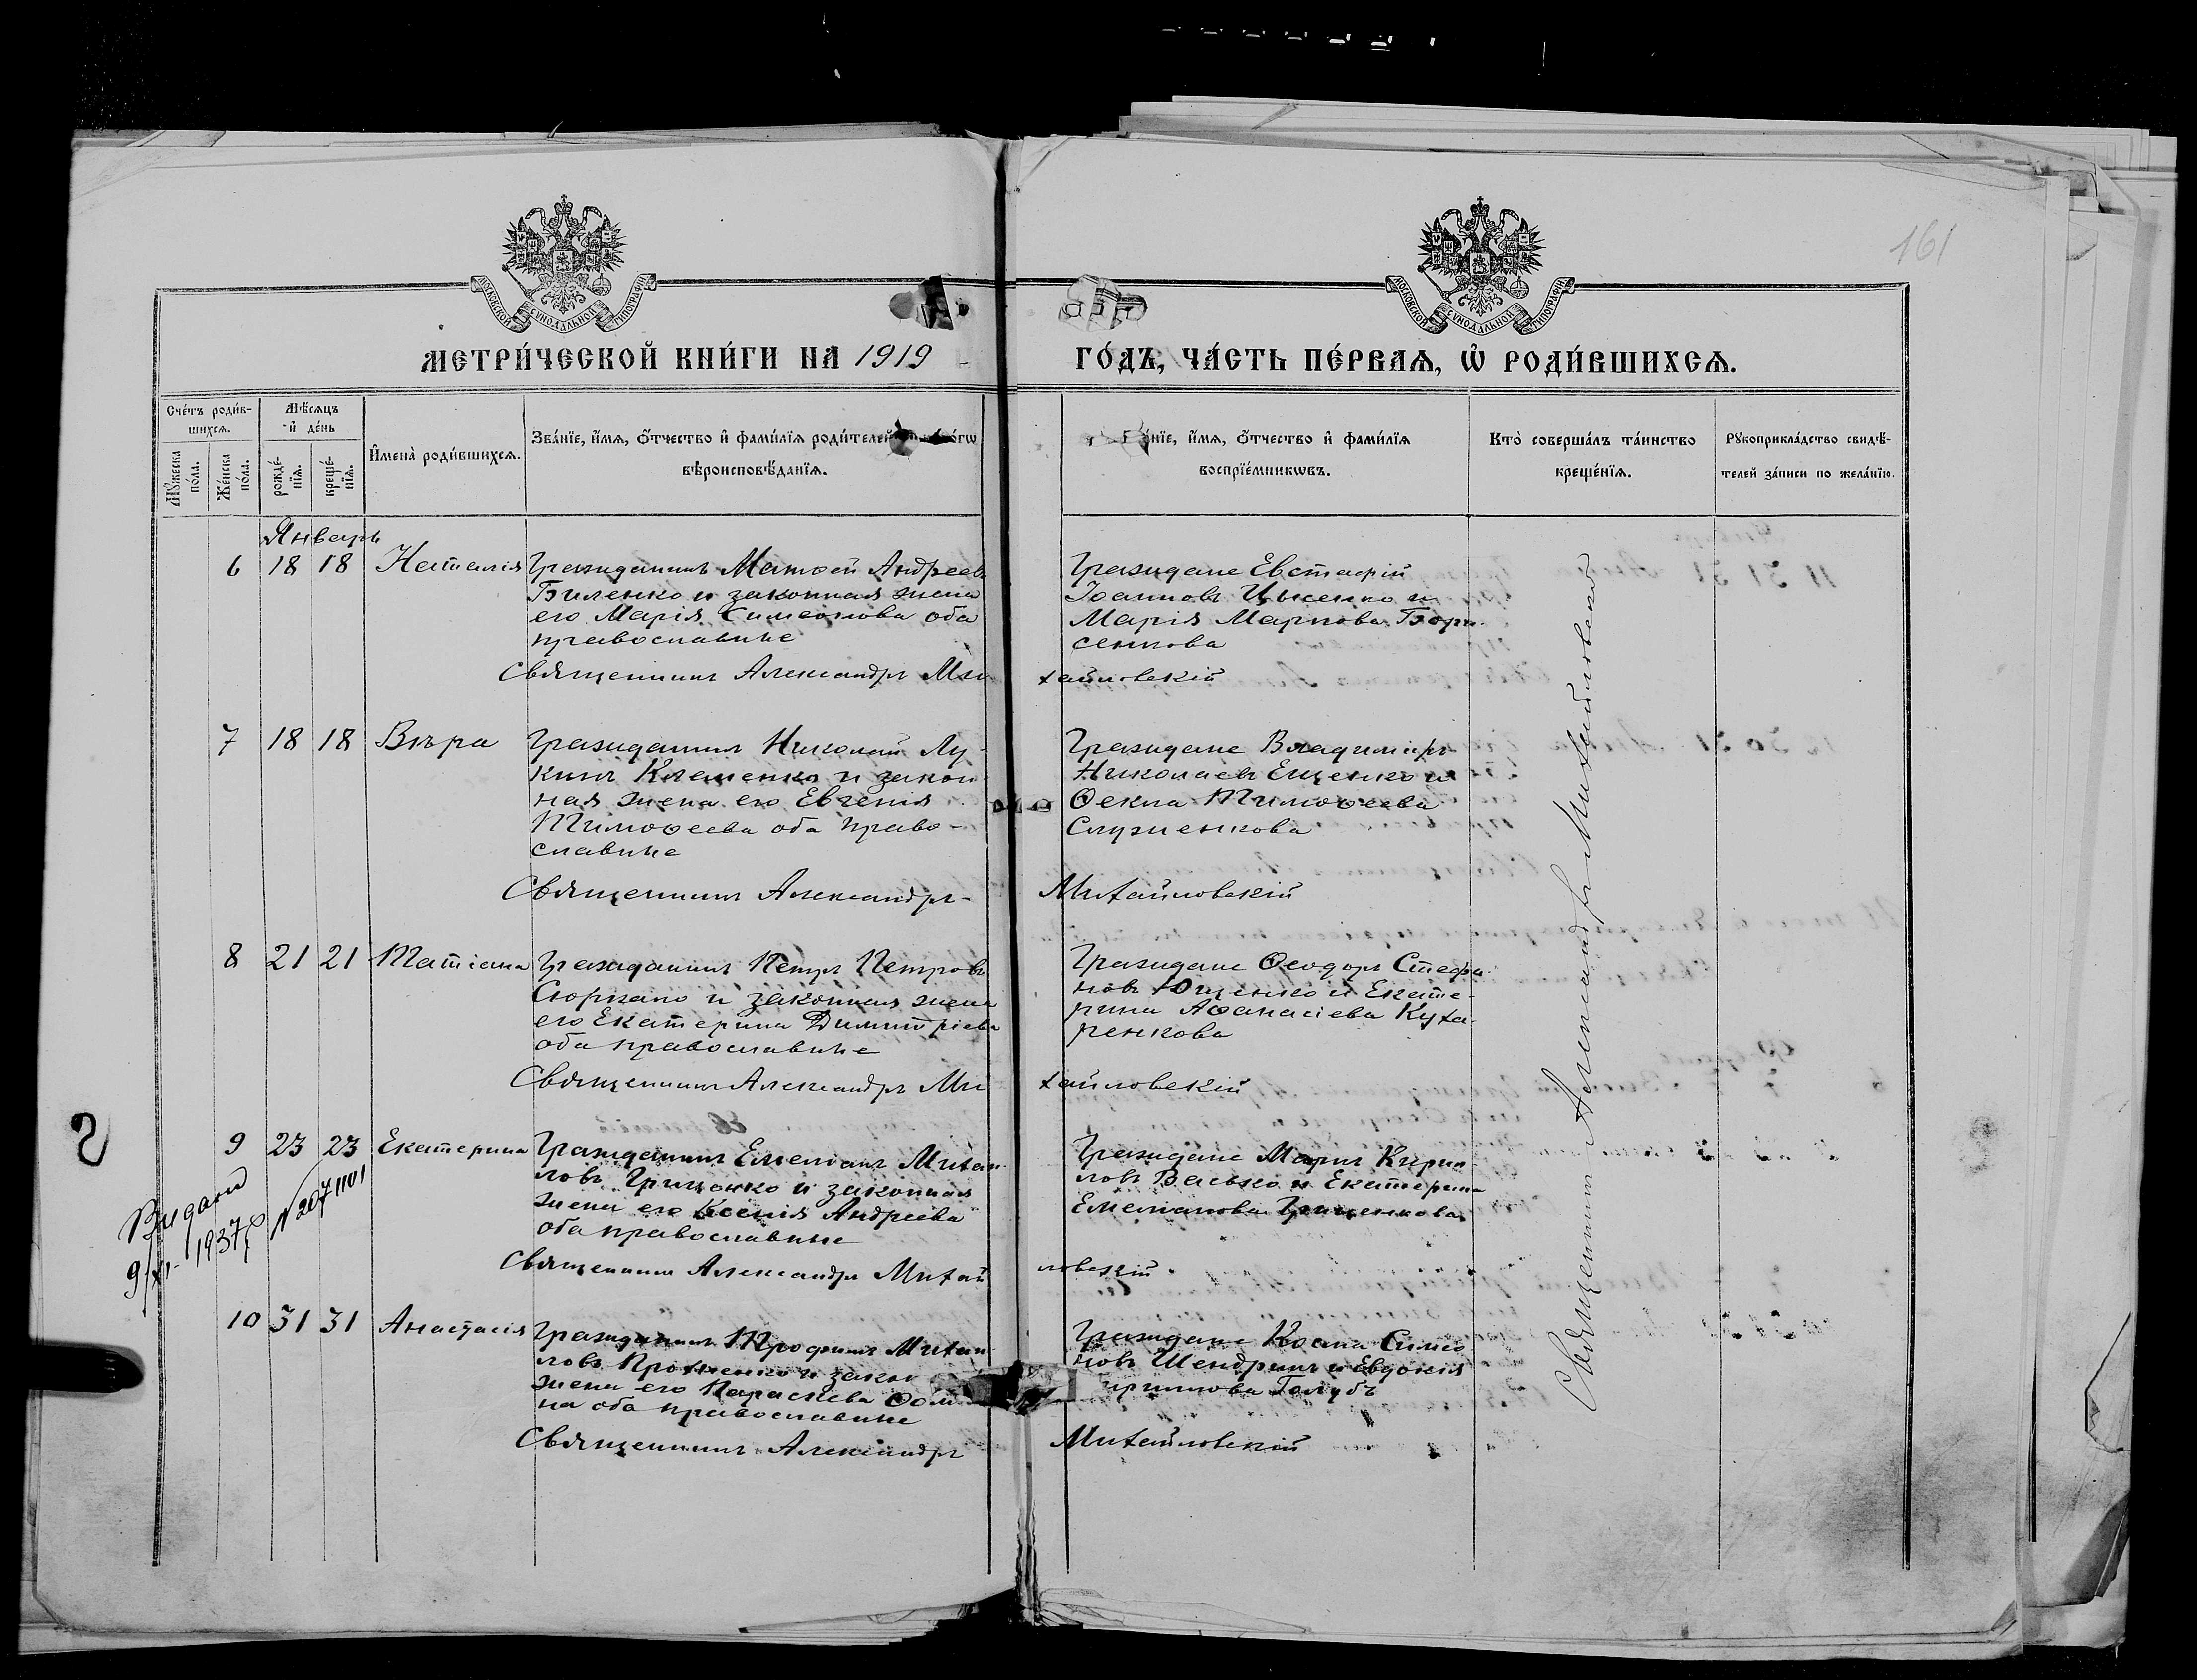 161
МОСКОВСКОЙ СѴНОДАЛЬНОЙ ТИПОГРАФІИ
МОСКОВСКОЙ СѴНОДАЛЬНОЙ ТИПОГРАФІИ
МЕТРИ́ЧЕСКОЙ КНИ́ГИ НА 1919
ГО́ДЪ, ЧА́СТЬ ПЕ́РВАѦ, Ѡ҆ РОДИ́ВШИХСѦ.
Сче́тъ роди́в-
шихсѧ.
Мꙋ́жеска по́ла.
Же́нска по́ла.
Мѣ́сѧцъ
и҆ де́нь
рожде́-
нїѧ.
креще́-
нїѧ.
И҆мена̀ роди́вшихсѧ.
Зва́нїе, и҆́мѧ, ѻ҆́тчество и҆ фамы́лїѧ роди́телей
вѣроисповѣ́данїѧ.
и҆́мѧ, ѻ҆́тчество и҆ фамы́лїѧ
воспрїе́мникѡвъ.
Кто̀ соверша́лъ та́инство
креще́нїѧ.
Рꙋкоприкла́дство свидѣ́-
телей за́писи по жела́нїю.
Январь
6 18 18 Наталія
Гражданинъ Матѳей Андреевъ
Биленко и законная жена
его Марія Симеонова оба
православные
Граждане Евстафій
Іоанновъ Цысенко и
Марія Маркова Бори
сенкова
Священникъ Александръ Ми
хайловскій
7 18 18 Вѣра
Гражданинъ Николай Лу-
кинъ Клеменко и закон
ная жена его Евгенія
Тимоѳеева оба право-
славные
Граждане Владиміръ
Николаевъ Ещенко и
Ѳекла Тимоѳеева
Служенкова
Священникъ Александръ-
Михайловскій
8 21 21 Татіана
Гражданинъ Петръ Петровъ
и законная жена
его Екатерина Димитріева
оба православные
Граждане Ѳеодоръ Стефа
новъ Ющенко и Екате-
рина Аѳанасіева Куха-
ренкова
Священникъ Александръ Ми
хайловскій
9 23 23 Екатерина
Гражданинъ Емеліанъ Михаи
ловъ Гриценко и законная
жена его Ксенія Андреева
оба православные
Граждане Маркъ Кирил
ловъ Васько и Екатерина
Емеліанова Гриценкова
Священникъ Александръ Михай
ловскій
Видано
9/XI- 1937р
N 2071101
10 31 31 Анастасія
Гражданинъ Трофимъ Михаи
ловъ и закон
жена его Параскева Ѳом
на оба православные
Граждане Іоанъ Симео
новъ Шендрикъ и Евдокія
Голубъ
Священникъ Александръ
Михайловскій
Священникъ Александръ Михайловскій